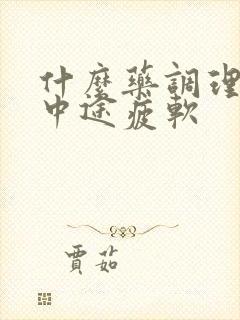 什麼藥調理
中途疲軟
賈茹